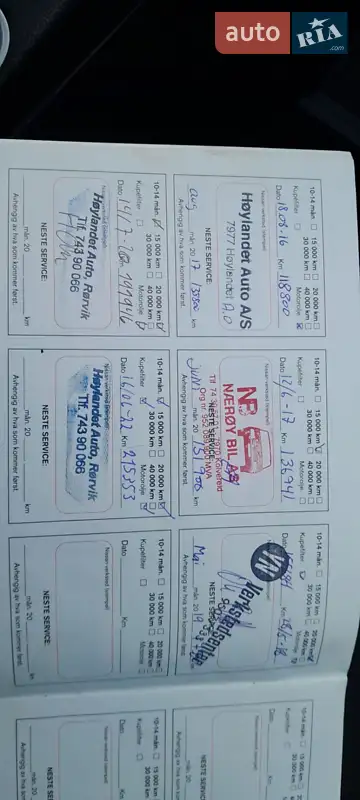 auto
RIA.com
10-14 mån. 15 000 km 20 000 km
Kupefilter 30 000 km 40 000 km Motorolje
Dato 18.08-16 Km 118800
Nissan verksted (stempel)
Høylander Auto A/S
7977 Høylandet
NESTE SERVICE:
aug mån. 20 17 km
Avhengig av hva som kommer først.
10-14 mån. 15 000 km 20 000 km
Kupefilter 30 000 km 40 000 km Motorolje
Dato 12/6-17 Km 136941
NB
NÆRØY BIL AS
NESTE SERVICE:
Juni mån. 20 km
Avhengig av hva som kommer først.
10-14 mån. 15 000 km 20 000 km
Kupefilter 30 000 km 40 000 km Motorolje
Dato Km
NESTE SERVICE:
Mai mån. 20 19 km
Avhengig av hva som kommer først.
10-14 mån. 15 000 km 20 000 km
Kupefilter 30 000 km 40 000 km
10-14 mån. 15 000 km 20 000 km
Kupefilter 30 000 km 40 000 km Motorolje
Dato Km 191946
Nissan verksted (stempel)
Høylandet Auto, Rørvik
Tlf. 743 90 066
NESTE SERVICE:
mån. 20 km
Avhengig av hva som kommer først.
10-14 mån. 15 000 km 20 000 km
Kupefilter 30 000 km 40 000 km Motorolje
Dato 16/06-22 Km 215353
Nissan verksted (stempel)
Høylandet Auto, Rørvik
Tlf. 743 90 066
NESTE SERVICE:
mån. 20 km
Avhengig av hva som kommer først.
10-14 mån. 15 000 km 20 000 km
Kupefilter 30 000 km 40 000 km Motorolje
Dato Km
Nissan verksted (stempel)
NESTE SERVICE:
mån. 20 km
Avhengig av hva som kommer først.
10-14 mån. 15 000 km
Kupefilter 30 000 km
Dato Km
Nissan verksted (stempel)
NESTE SERVICE:
mån. 20
Avhengig av hva som kommer først.